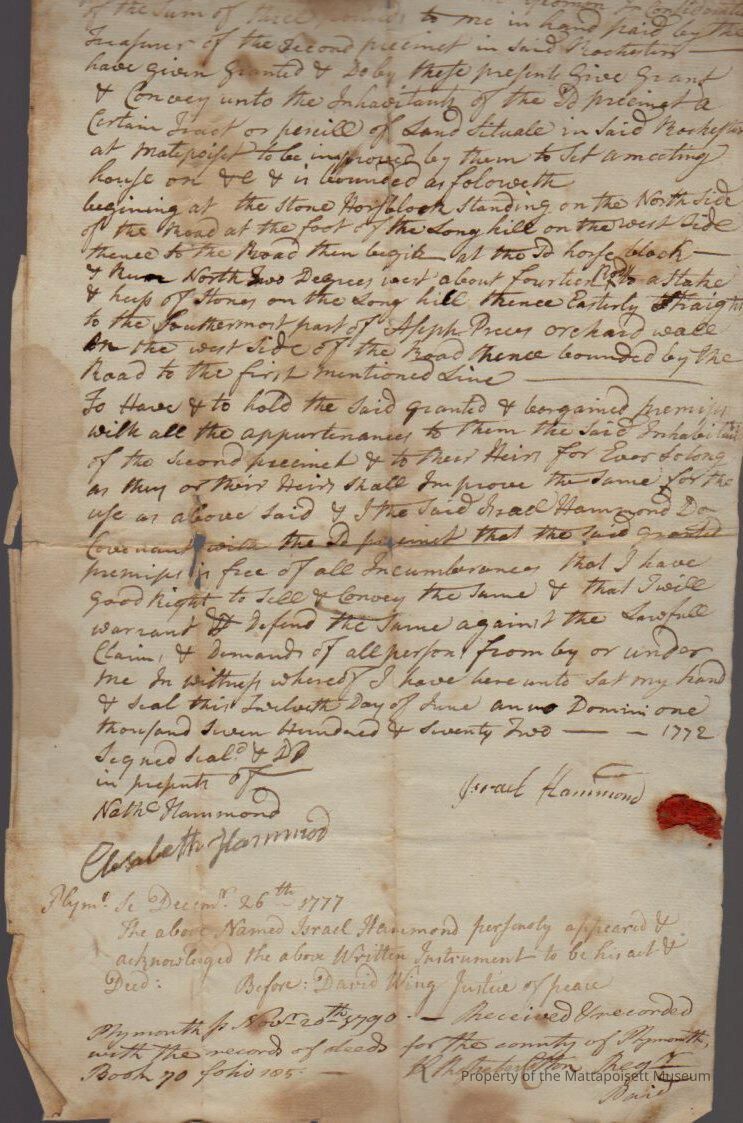 of the Sum of three pounds to me in hand paid by the
Treasurer of the Second precinct in said Rochester
have given Granted & Do by these presents Give Grant
& Convey unto the Inhabitants of the Sd precinct a
Certain Tract or percill of Land Situate in said Rochester
at Matepoiset to be improved by them to Set a meeting
house on &c & is bounded as foloweth
begining at the Stone Horsblock Standing on the North Side
of the Road at the foot of the Long hill on the west Side
thence to the Road then begin at the Sd horse block
& Run North Two Degrees west about fourtien Rods to a Stake
& heep of Stones on the Long hill thence Easterly Straight
to the Southermost part of Prices orchard wall
on the west Side of the Road thence bounded by the
Road to the first mentioned Line
To Have & to hold the said granted & bargained premises
with all the appurtenances to them the said Inhabitants
of the Second precinct & to their Heirs for Ever So long
as they or their Heirs shall Improve the Same for the
use as above said & I the Said Israel Hammond Do
Covenant with the Sd precinct that the said granted
premises is free of all Incumberances that I have
good Right to Sell & Convey the Same & that I will
warrant & Defend the Same against the Lawfull
Claims & Demands of all persons from by or under
me In witness whereof I have here unto Sat my hand
& Seal this Twelveth Day of June anno Domini one
thousand Seven Hundred & Seventy Two — — 1772
Signed Seald & DD
in presents of
Israel Hammond
Nathl Hammond
Elisabeth Hammond
Plymo. Sc Decemr. 26th 1777
The above Named Israel Hammond personoly appeared &
acknowledged the above Written Instrument to be his act &
Deed: Before: David Wing Justice of peace
Plymouth ss Novr 20th 1790. — Received & recorded
with the records of deeds for the county of Plymouth,
Book 70 folio 185. Cotton Regr
Property of the Mattapoisett Museum
Paid